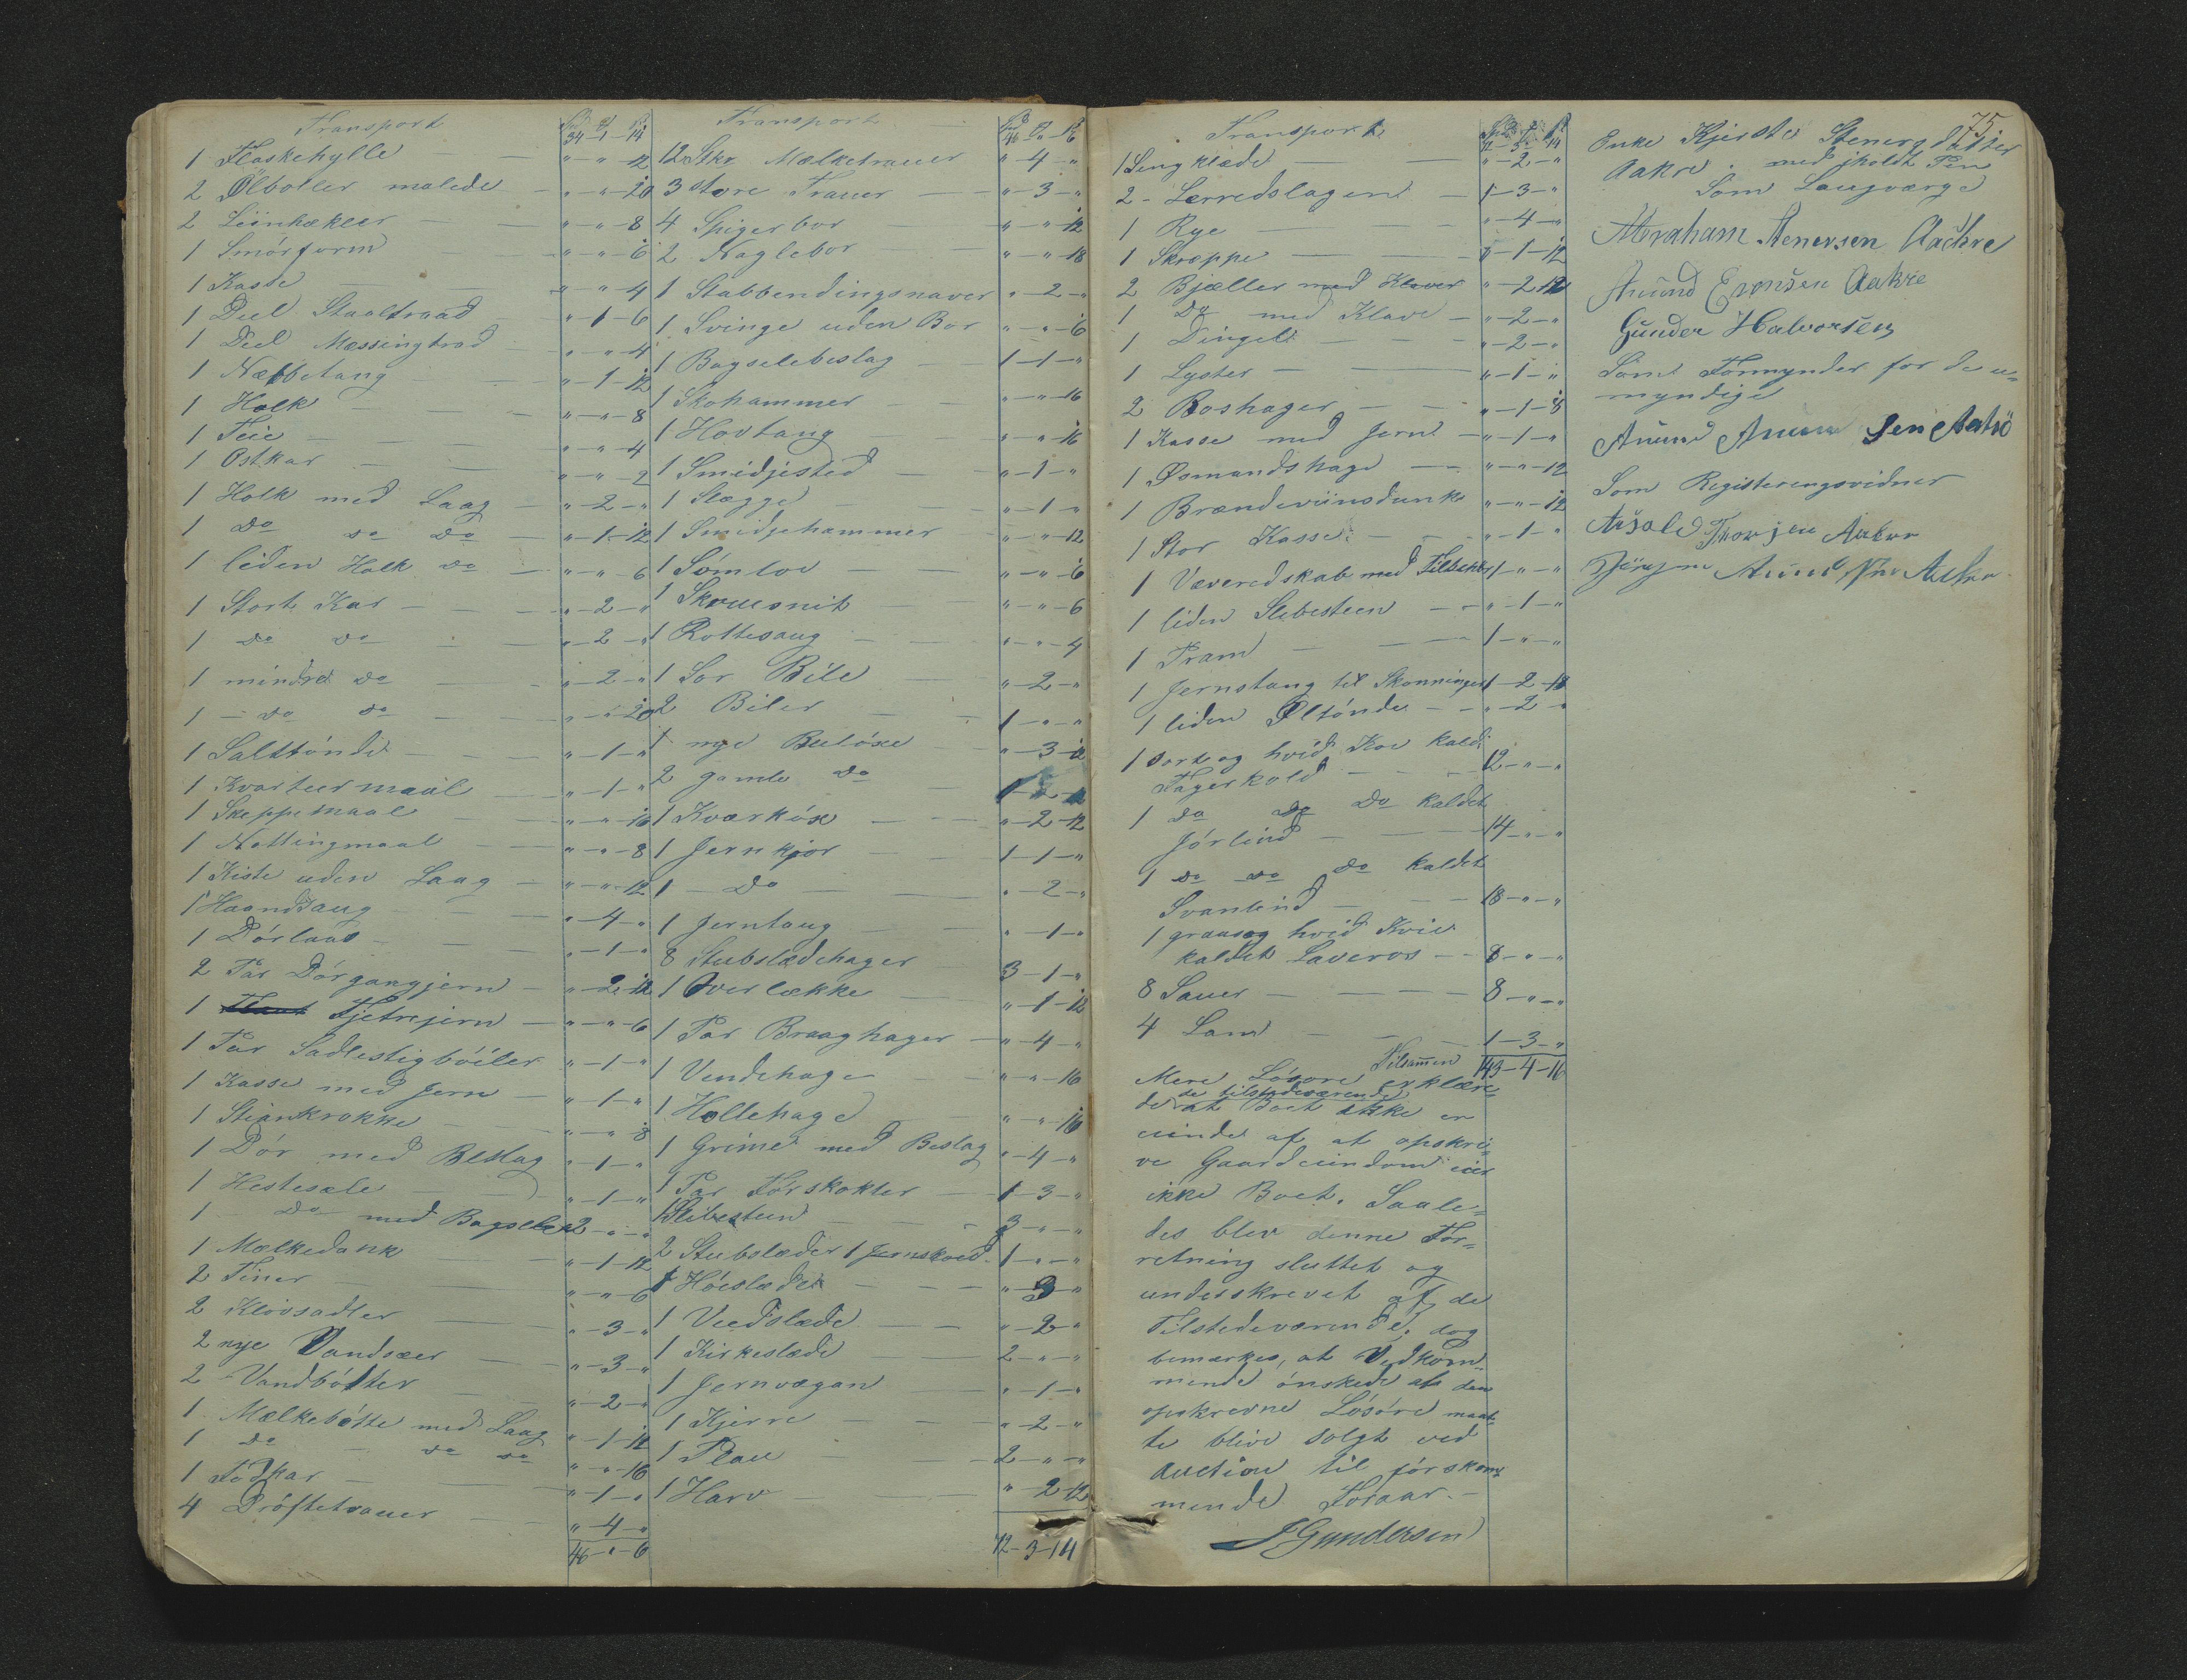 Transport 34-1-14
1 Flaskehylle „-„-12
2 Ölboller malede „-„-20
2 Liinhækler „-„-8
1 Smörform „-„-6
1 Kasse „-„-4
1 Deel Staaltraad „-1-6
1 Deel Messingtrad „-„-4
1 Næbbetang „-1-12
1 Holk „-„-8
1 Teie „-„-4
1 Ostkar „-„-2
1 Holk med Laag „-2-„
1 Do Do Do „-1-12
1 liden Holk Do „-„-6
1 Stort Kar „-2-„
1 Do Do „-2-„
1 mindre Do „-2-„
1 - Do Do „-„-20
1 Salttönde „-1-„
1 Kvarteermaal „-1-„
1 Skeppemaal „-„-16
1 Nottingmaal „-„-8
1 Kiste uden Laag „-„-12
1 Haandsaug „-4-„
1 Dörlaas „-1-„
2 Par Dörgangjern „-2-12
1 Fjetrejern „-„-6
1 Par Sadlestigböiler „-1-„
1 Kasse med Jern „-1-„
1 Steinkrokke „-„-8
1 Dör med Beslag „-1-„
1 Hestesæle „-1-„
1 Do med Bagsele 2-„-„
1 Mælkedank „-1-12
2 Tiner „-„-6
2 Klövsadler „-3-„
2 nye Vandsæer „-3-„
2 Vandbötter „-2-„
1 Mælkebötte med Laag „-1-12
1 Do Do Do „-„-16
1 Födkar „-1-„
4 Dröftetrauer „-4-„
46-„-6
Transport 46-„-6
12 Stkr Mælketrauer „-4-„
3 store Trauer „-3-„
4 Spigerbor „-„-12
2 Naglebor „-„-18
1 Stabbendingsnaver „-2-„
1 Svinge uden Bor „-„-6
1 Bagselebeslag 1-1-„
1 Skohammer „-„-16
1 Hovtang „-„-16
1 Smidjested „-1-„
1 Slægge „-1-„
1 Smidjehammer „-„-12
1 Sömlov „-„-6
1 Skruesnit „-„-6
1 Rottesaug „-„-4
1 Sor Bile „-2-„
2 Biler 1-„-„
1 nye Bulöxe „-3-12
2 gamle Do
1 Kværköx „-2-12
1 Jernkjør 1-1-„
1 - Do „-2-„
1 Jerntaug „-1-„
8 Stubslædehager 3-1-„
1 Overlække „-1-12
1 Par Braaghager „-4-„
1 Vendehage „-„-16
1 Hollehage „-„-16
1 Grime med Beslag „-4-„
1 Par Förskokler 1-3-„
1 Slibesteen 3-„-„
2 Stubslæder 1 Jernskoed 1-„-„
1 Höislæde „-3-„
1 Veedslæde „-2-„
1 Kirkeslæde 2-„-„
1 Jernvægan „-1-„
1 Kjerre „-2-„
1 Plau 2-„-„
1 Harv „-2-12
72-3-14
Transport 72-3-14
1 Sengklæde „-2-„
2 - Lærredslagen 1-3-„
1 Rye „-4-„
1 Skræppe „-1-12
2 Bjæller med Klaver „-2-12
1 Do med Klave „-2-„
1 Dingel „-2-„
1 Lyster „-1-„
2 Boshager „-1-8
1 Kasse med Jern „-1-„
1 Øsmandshage „-„-12
1 Brændeviinsdunk „-„-12
1 Stor Kasse „-1-„
1 Væveredskab med Tilbehör 1-„-„
1 liden Slebesteen „-1-„
1 Pram 1-„-„
1 Jernstang til Skonninger 1-2-18
1 liden Øltönde „-2-„
1 sort og hvid Koe kald.
Fagerkold 12-„-„
1 Do Do Do kaldet
Jörlind 14-„-„
1 Do Do Do kaldet
Svanlind 18-„-„
1 graaog hvid Kvie
kaldet Laveros 8-„-„
8 Sauer 8-„-„
4 Lam 1-3-„
Tilsamen 149-4-16
Mere Lösöre erklære-
de de tilstedeværende at Boet ikke er
eiende af at opskri-
ve Gaardeiendom eier
ikke Boet. Saale-
des blev denne For-
retning sluttet og
underskrevet af de
Tilstedeværende, dog
bemærkes, at Vedkom-
mende önskede at den
opskrevne Lösöre maat-
te blive solgt ved
Auction til förskom-
mende Foraar. -
J Gundersen
75
Enke Kjersti Stenersdatter
Aakre med iholdt Pen
Som Laugværge
Abraham Stenersen Aachre
Anund Evensen Aakre
Gunder Halvorsen
Som Formynder for de u-
myndige
Anund
Som Registeringsvidner